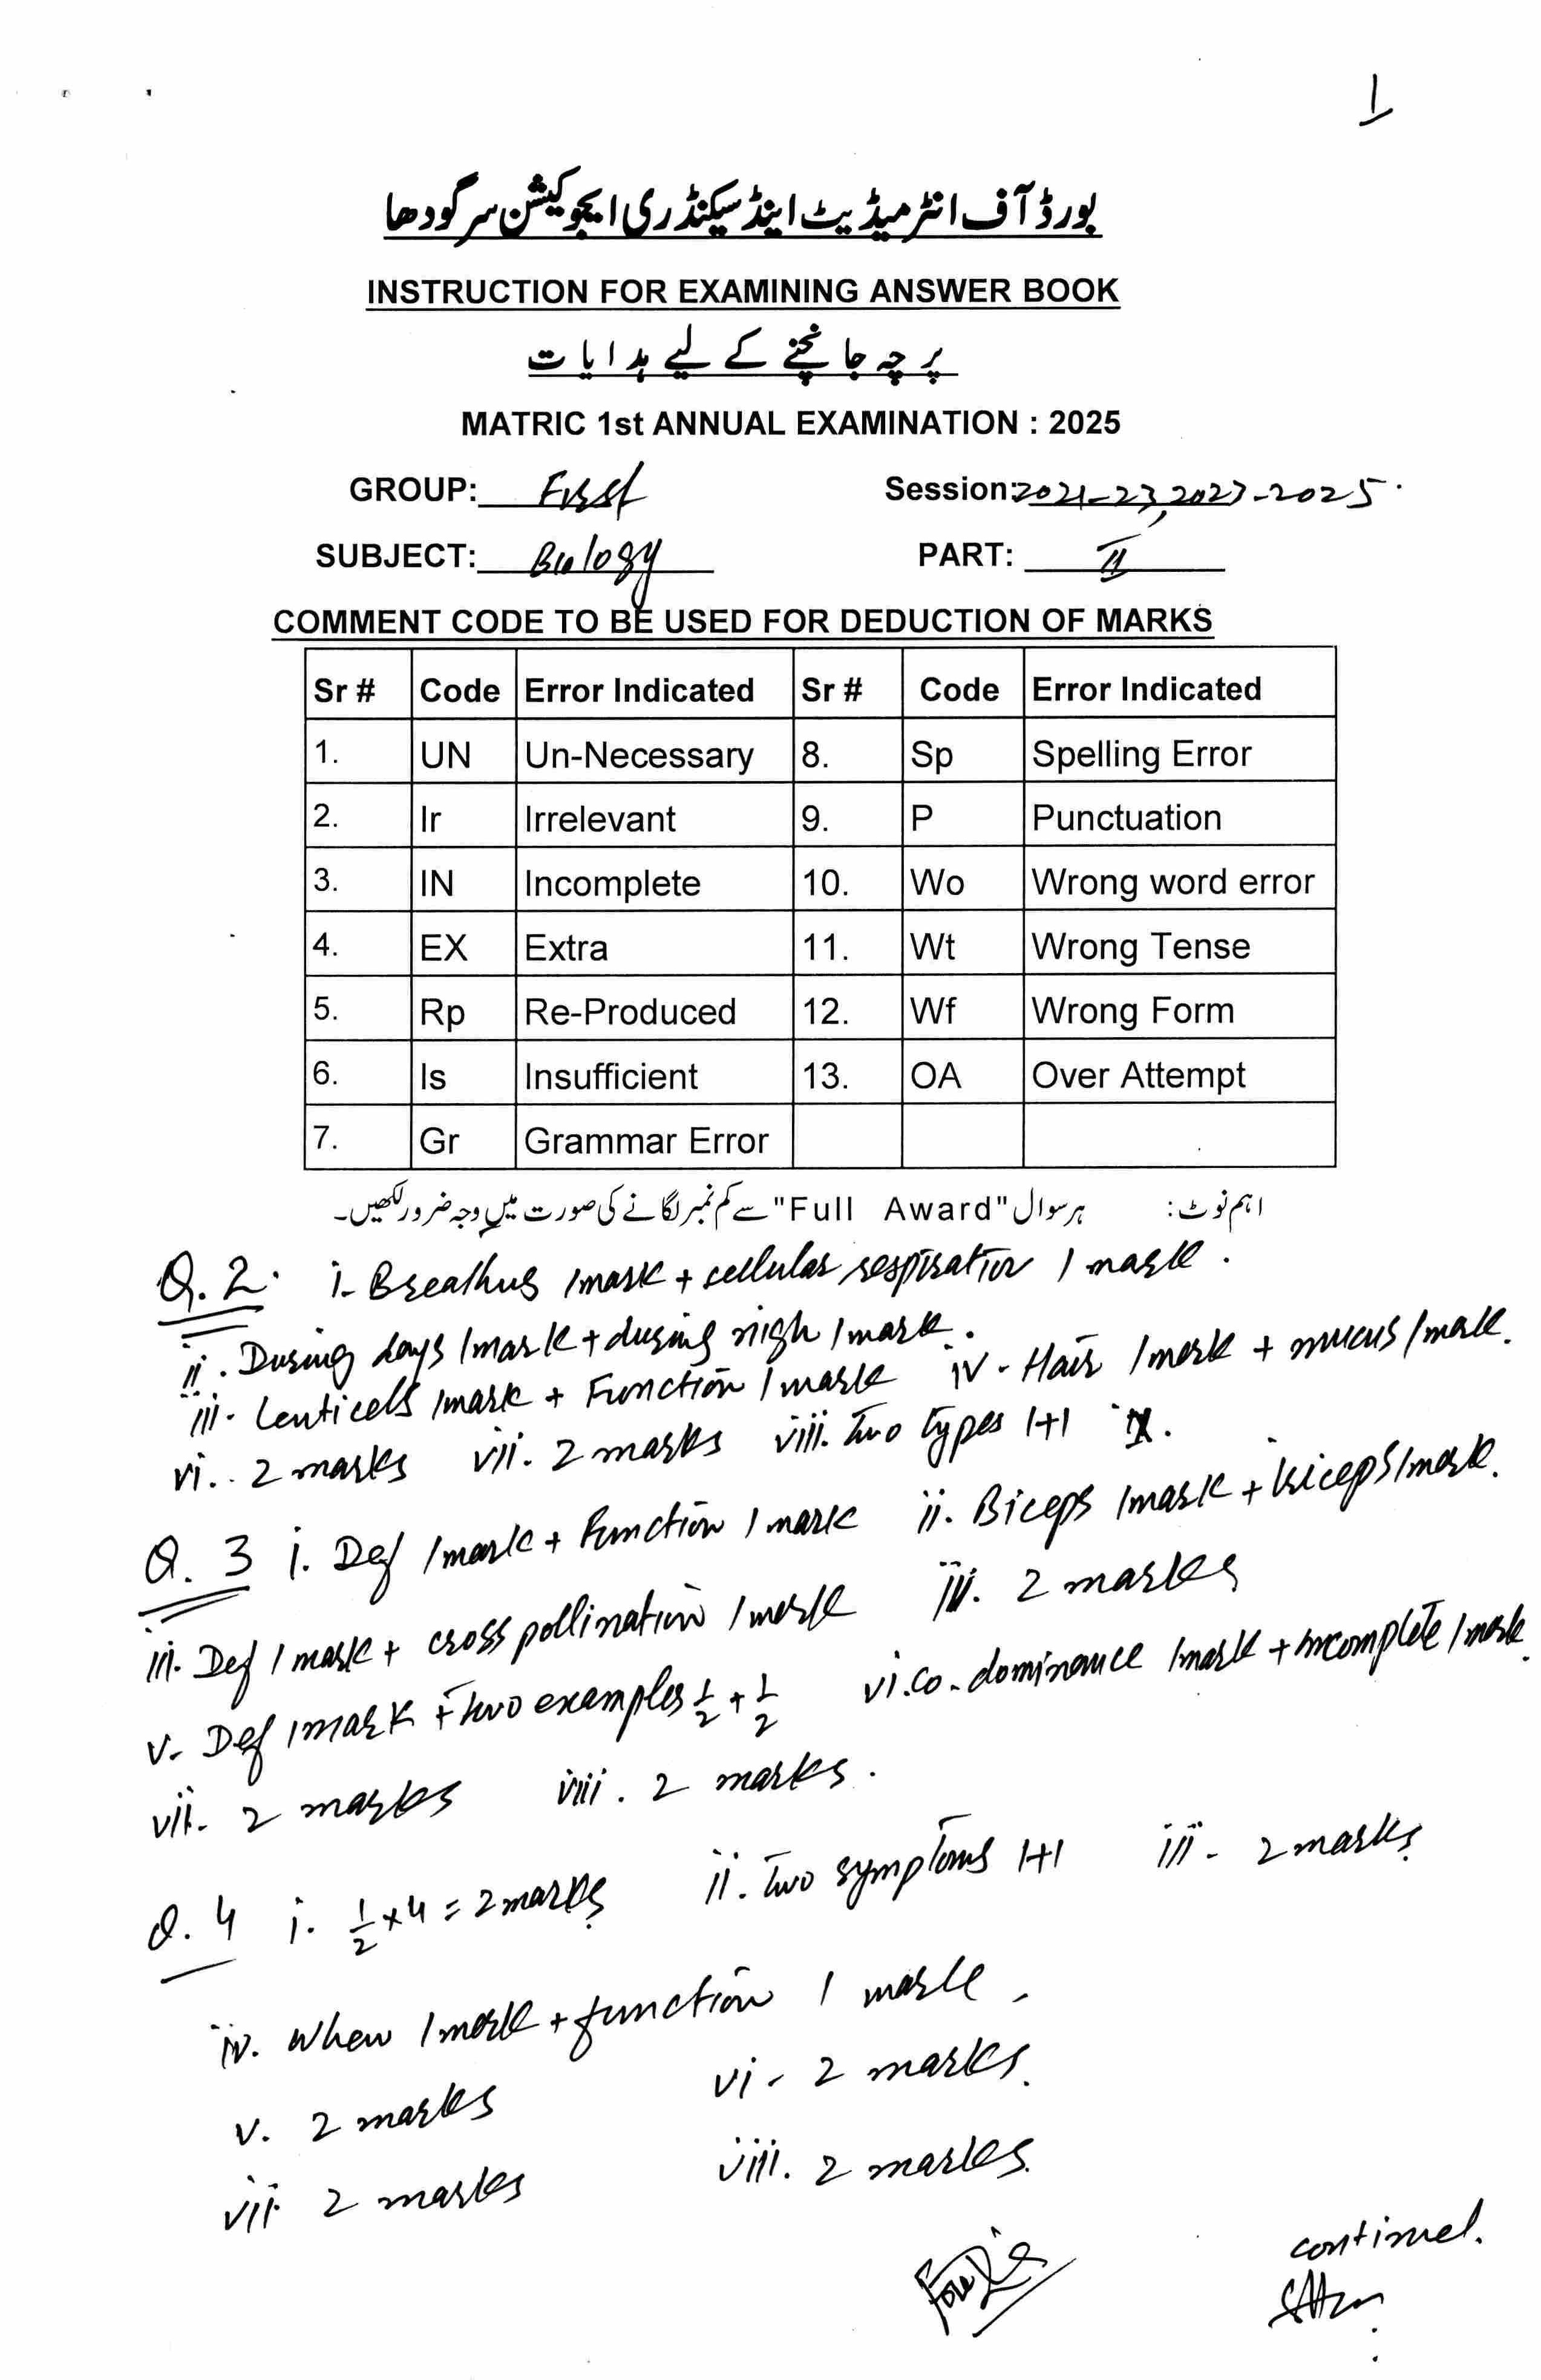 1
بورڈ آف انٹرمیڈیٹ اینڈ سیکنڈری ایجوکیشن سرگودھا
INSTRUCTION FOR EXAMINING ANSWER BOOK
پرچہ جانچنے کے لیے ہدایات
MATRIC 1st ANNUAL EXAMINATION : 2025
GROUP: First Session: 2021-23, 2023-2025.
SUBJECT: Biology PART: II
COMMENT CODE TO BE USED FOR DEDUCTION OF MARKS
Sr # Code Error Indicated Sr # Code Error Indicated
1. UN Un-Necessary 8. Sp Spelling Error
2. Ir Irrelevant 9. P Punctuation
3. IN Incomplete 10. Wo Wrong word error
4. EX Extra 11. Wt Wrong Tense
5. Rp Re-Produced 12. Wf Wrong Form
6. Is Insufficient 13. OA Over Attempt
7. Gr Grammar Error
اہم نوٹ: ہر سوال "Full Award" سے کم نمبر لگانے کی صورت میں وجہ ضرور لکھیں۔
Q.2. i- Breathing 1 mark + cellular respiration 1 mark.
ii. During days 1 mark + during nigh 1 mark.
iii. Lenticells 1 mark + Function 1 mark iv- Hair 1 mark + mucus 1 mark.
vi.. 2 marks vii. 2 marks viii. Two types 1+1
Q. 3 i. Def 1 mark + Function 1 mark ii. Biceps 1 mark + triceps 1 mark.
iii. Def 1 mark + cross pollination 1 mark iv. 2 marks
v. Def 1 mark + two examples 1/2 + 1/2 vi. Co-dominance 1 mark + incomplete 1 mark.
vii. 2 marks viii. 2 marks.
Q. 4 i. 1/2 × 4 = 2 marks ii. Two symptoms 1+1 iii- 2 marks
iv. When 1 mark + function 1 mark.
v. 2 marks vi- 2 marks.
vii 2 marks viii. 2 marks.
continued.